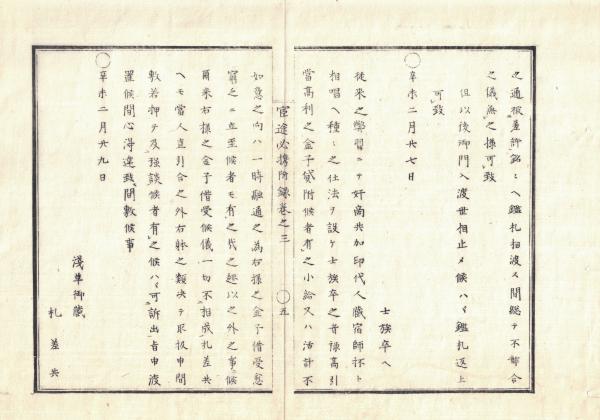 之通被差許銘々ヘ鑑札相渡ス間総テ不都合
之儀無之様可致
但以後御門入渡世相止メ候ハヽ鑑札返上
可致
〇辛未二月廿七日
士族卒ヘ
従来之弊習ニテ奸商共加印代人蔵宿師抔ト
相唱ヘ種々之仕法ヲ設ケ士族卒之者禄高引
当高利之金子貸附候者有之小給又ハ活計不
如意之向ハ一時融通之為右様之金子借受愈
窮乏ニ立至候者モ有之哉之趣以之外之事ニ候
爾来右様之金子借受候儀一切不相成札差共
ヘモ当人直引合之外右躰之類決テ取扱申間
敷若押テ及強談候者有之候ハヽ可訴出旨申渡
置候間心得違致間敷候事
〇辛未二月廿九日
浅草御蔵
札差共
官途必携附録巻之三
〇五